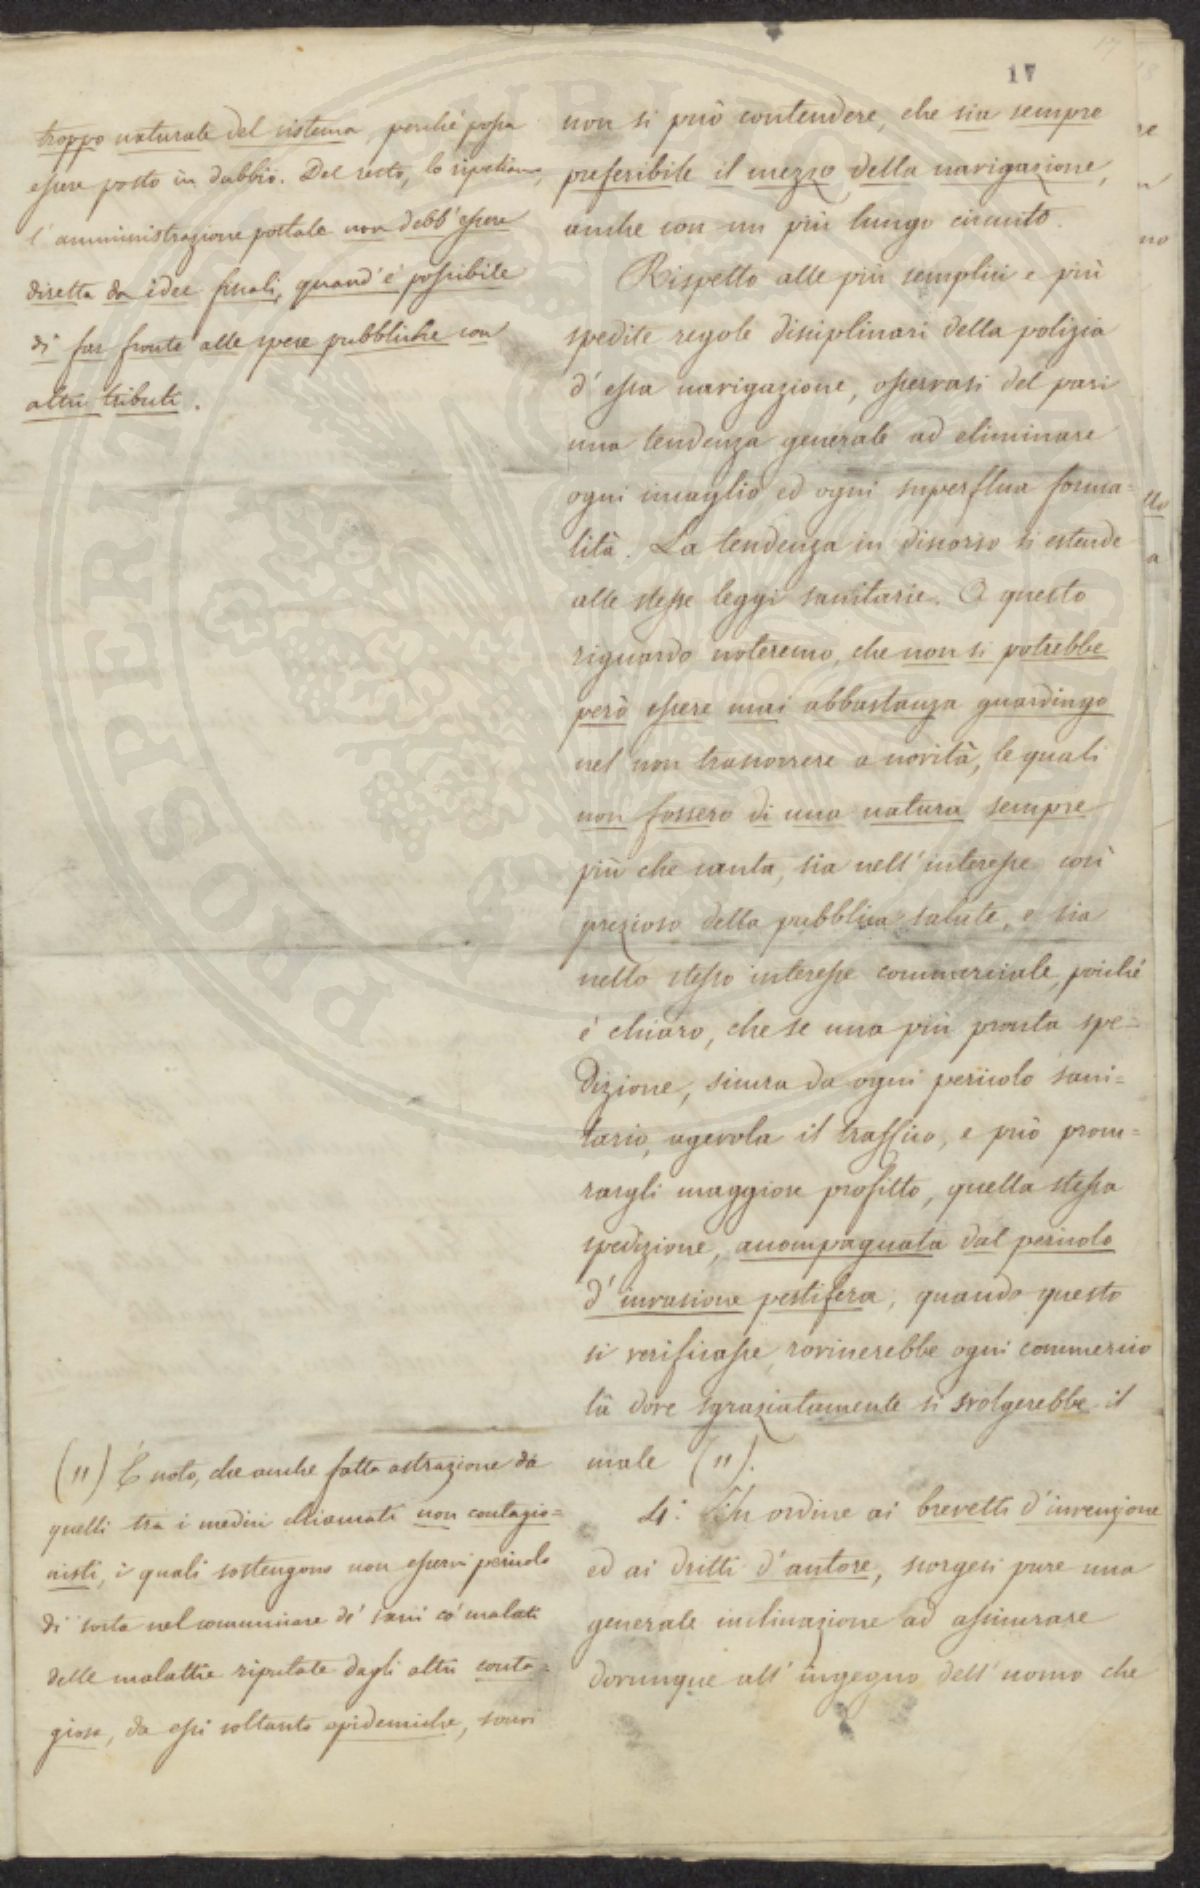 17
troppo naturale del sistema, perché possa
essere posto in dubbio. Del resto, lo ripetiamo,
l'amministrazione postale non debb'essere
diretta da idee fiscali, quand'è possibile
di far fronte alle spese pubbliche con
altri tributi.
(11) È noto, che anche fatta astrazione da
quelli tra i medici chiamati non contagio=
nisti, i quali sostengono non esservi pericolo
di sorta nel comunicare de' sani co' malati
delle malattie riputate dagli altri conta=
giose, da essi soltanto epidemiche, sonvi
non si può contendere, che sia sempre
preferibile il mezzo della navigazione,
anche con un più lungo circuito.
Rispetto alle più semplici e più
spedite regole disciplinari della polizia
d'essa navigazione, osservasi del pari
una tendenza generale ad eliminare
ogni incaglio ed ogni superflua forma=
lità. La tendenza in discorso si estende
alle stesse leggi sanitarie. A questo
riguardo noteremo, che non si potrebbe
però essere mai abbastanza guardingo
nel non trascorrere a novità, le quali
non fossero di una natura sempre
più che cauta, sia nell'interesse così
prezioso della pubblica salute, e sia
nello stesso interesse commerciale, poiché
è chiaro, che se una più pronta spe=
dizione, sicura da ogni pericolo sani=
tario, agevola il traffico, e può procu=
rargli maggiore profitto, quella stessa
spedizione, accompagnata dal pericolo
d'invasione pestifera, quando questo
si verificasse, rovinerebbe ogni commercio
là dove sgraziatamente si svolgerebbe il
male (11).
4.° In ordine ai brevetti d'invenzione
ed ai dritti d'autore, scorgesi pure una
generale inclinazione ad assicurare
dovunque all'ingegno dell'uomo che